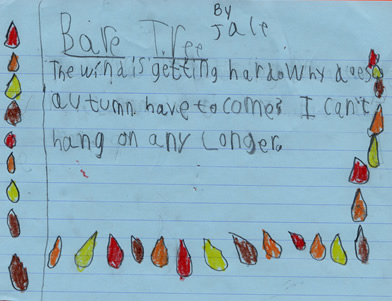 By
Jale
Bare Tree
The wind is getting hard. Why does
autumn have to come? I can't
hang on any Longer.